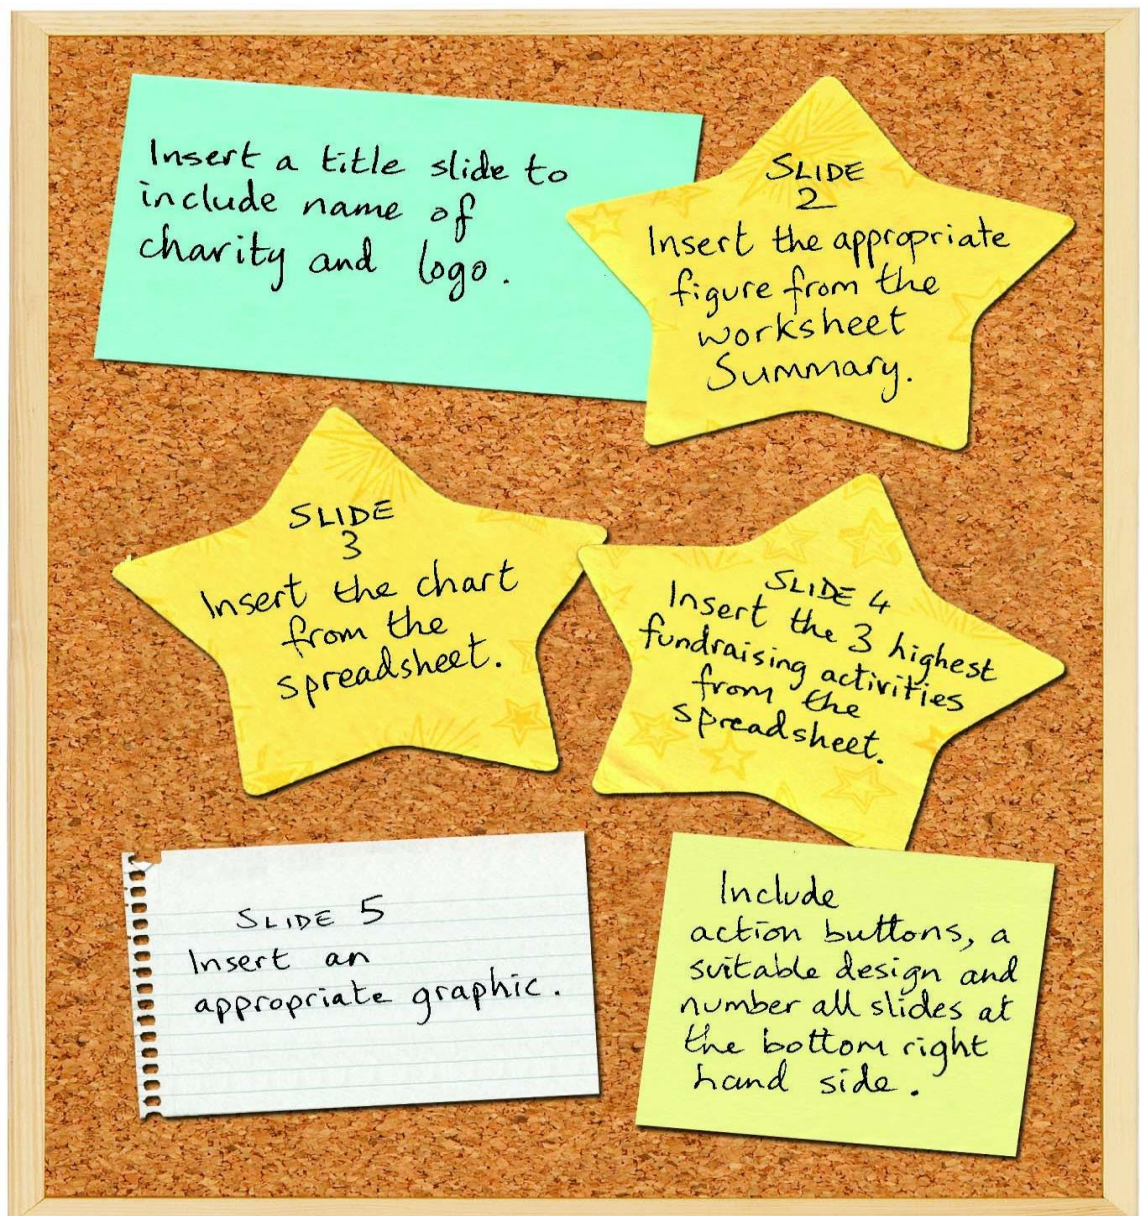 Insert a title slide to
include name of
charity and logo.
SLIDE
2
Insert the appropriate
figure from the
worksheet
Summary.
SLIDE
3
Insert the chart
from the
spreadsheet.
SLIDE 4
Insert the 3 highest
fundraising activities
from the
spreadsheet.
SLIDE 5
Insert an
appropriate graphic.
Include
action buttons, a
suitable design and
number all slides at
the bottom right
hand side.